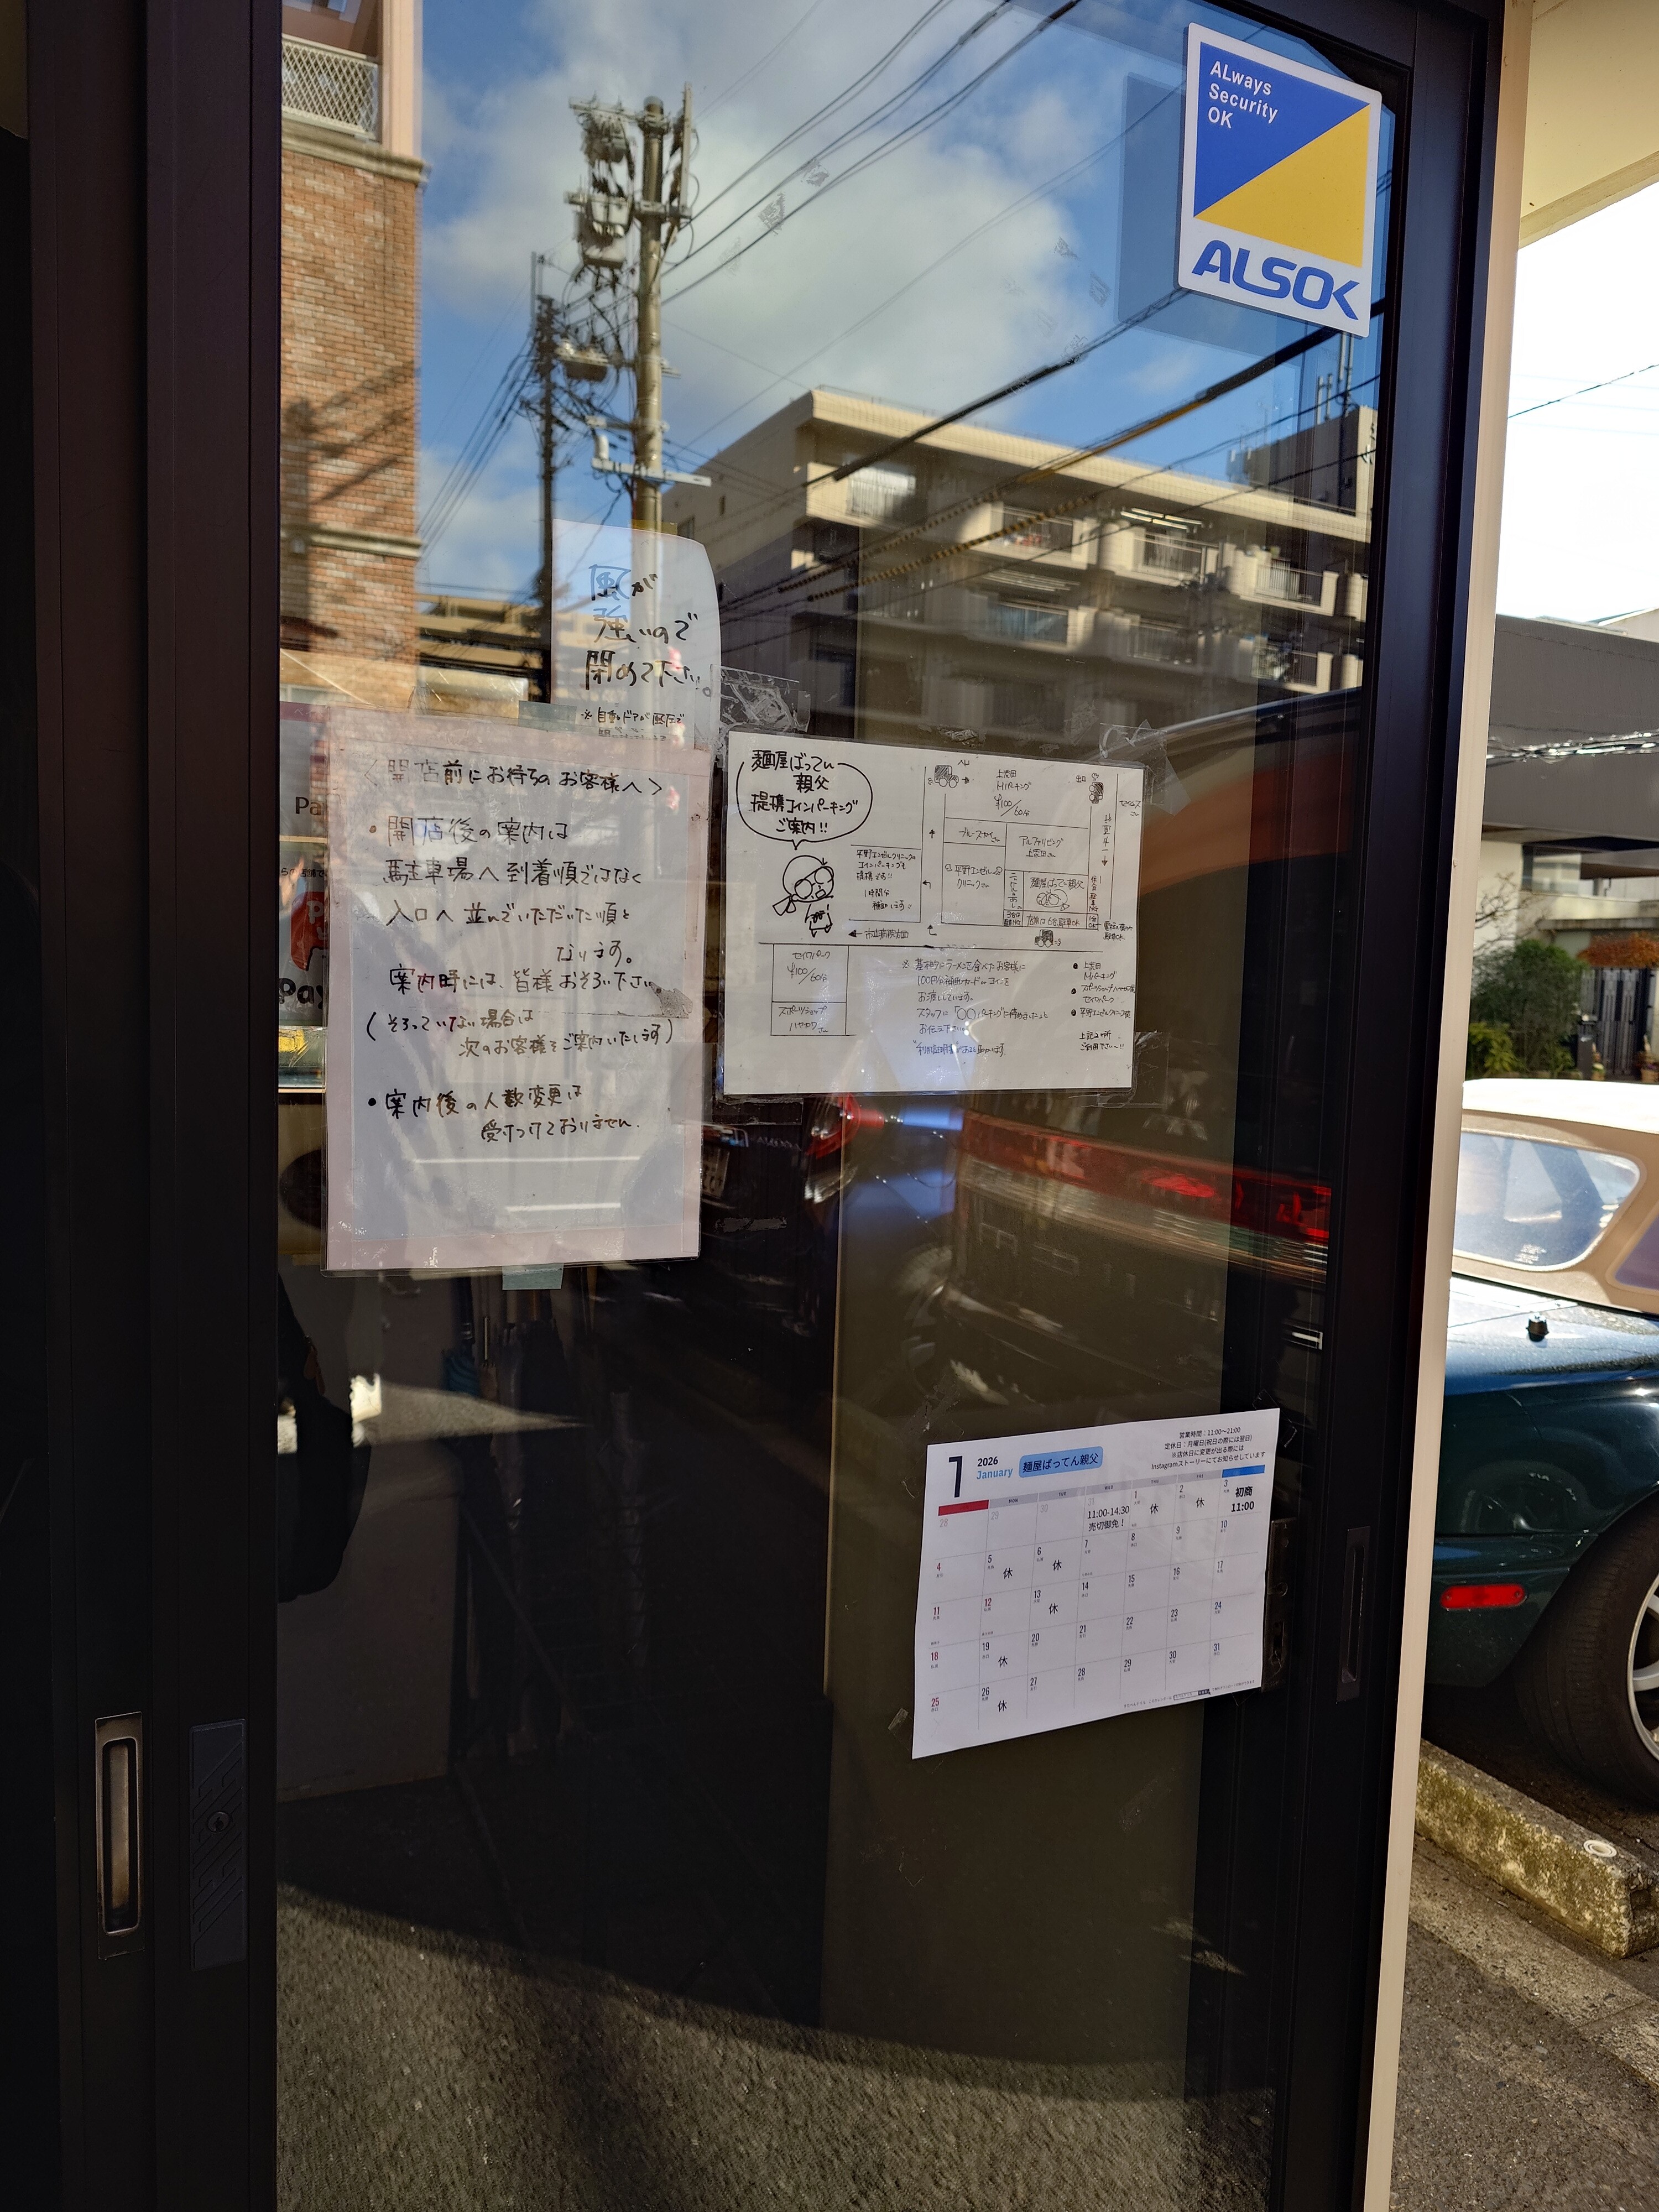 ALways
Security
OK
ALSOK
風が
強いので
閉めて下さい。
※自動ドアが風圧で
<開店前にお待ちのお客様へ>
・開店後の案内は
駐車場へ到着順ではなく
入口へ並んでいただいた順と
なります。
案内時には、皆様おそろい下さい。
(そろっていない場合は
次のお客様をご案内いたします)
・案内後の人数変更は
受けつけておりません。
麺屋ばってん
親父
提携コインパーキング
ご案内!!
上社田
Mパーキング
¥100/60分
出口
ブルースカイさん
アルファリビング
平野エンゼルクリニックの
コインパーキングも
提携です!!
1時間分
補助します。
平野エンゼル
クリニックさん
麺屋ばってん親父
店前は6台駐車OK
セイワパーク
¥100/60分
スポーツショップ
ハヤカワさん
※基本的にラーメンを食べたお客様に
100円分補助カードorコインを
お渡ししています。
スタッフに「〇〇パーキングに停めました」と
お伝え下さい。
Mパーキング
セイワパーク
上記2ヶ所
ご利用下さい!!
1
2026
January
麺屋ばってん親父
営業時間:11:00~21:00
定休日:月曜日(祝日の際には翌日)
※店休日に変更が出る際には
Instagramストーリーにてお知らせしています
MON TUE WED THU FRI
28 29 30 31 11:00-14:30 売切御免! 1 休 2 休 3 初商 11:00
4 5 休 6 休 7 8 9 10
11 12 13 休 14 15 16 17
18 19 休 20 21 22 23 24
25 26 休 27 28 29 30 31
Pay